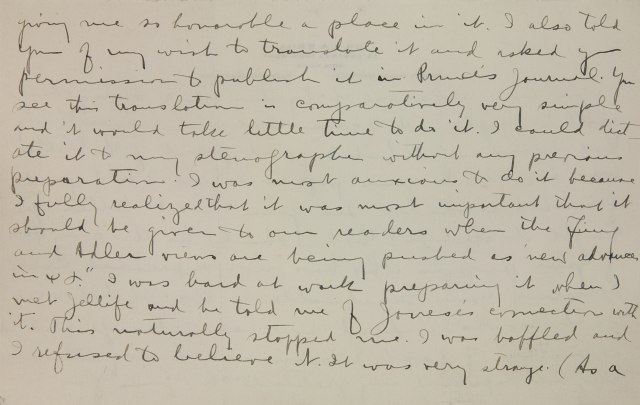 giving me so honorable a place in it. I also told
you of my wish to translate it and asked yr
permission to publish it in Prince's Journal. You
see this translation is comparatively very simple
and it would take little time to do it. I could dict-
ate it to my stenographer without any previous
preparation. I was most anxious to do it because
I fully realized that it was most important that it
should be given to our readers when the Jung
and Adler views are being pushed as "new advances
in". I was hard at work preparing it when I
met Jelliffe and he told me of Jones's connection with
it. This naturally stopped me. I was baffled and
I refused to believe it. It was very strange. (As a